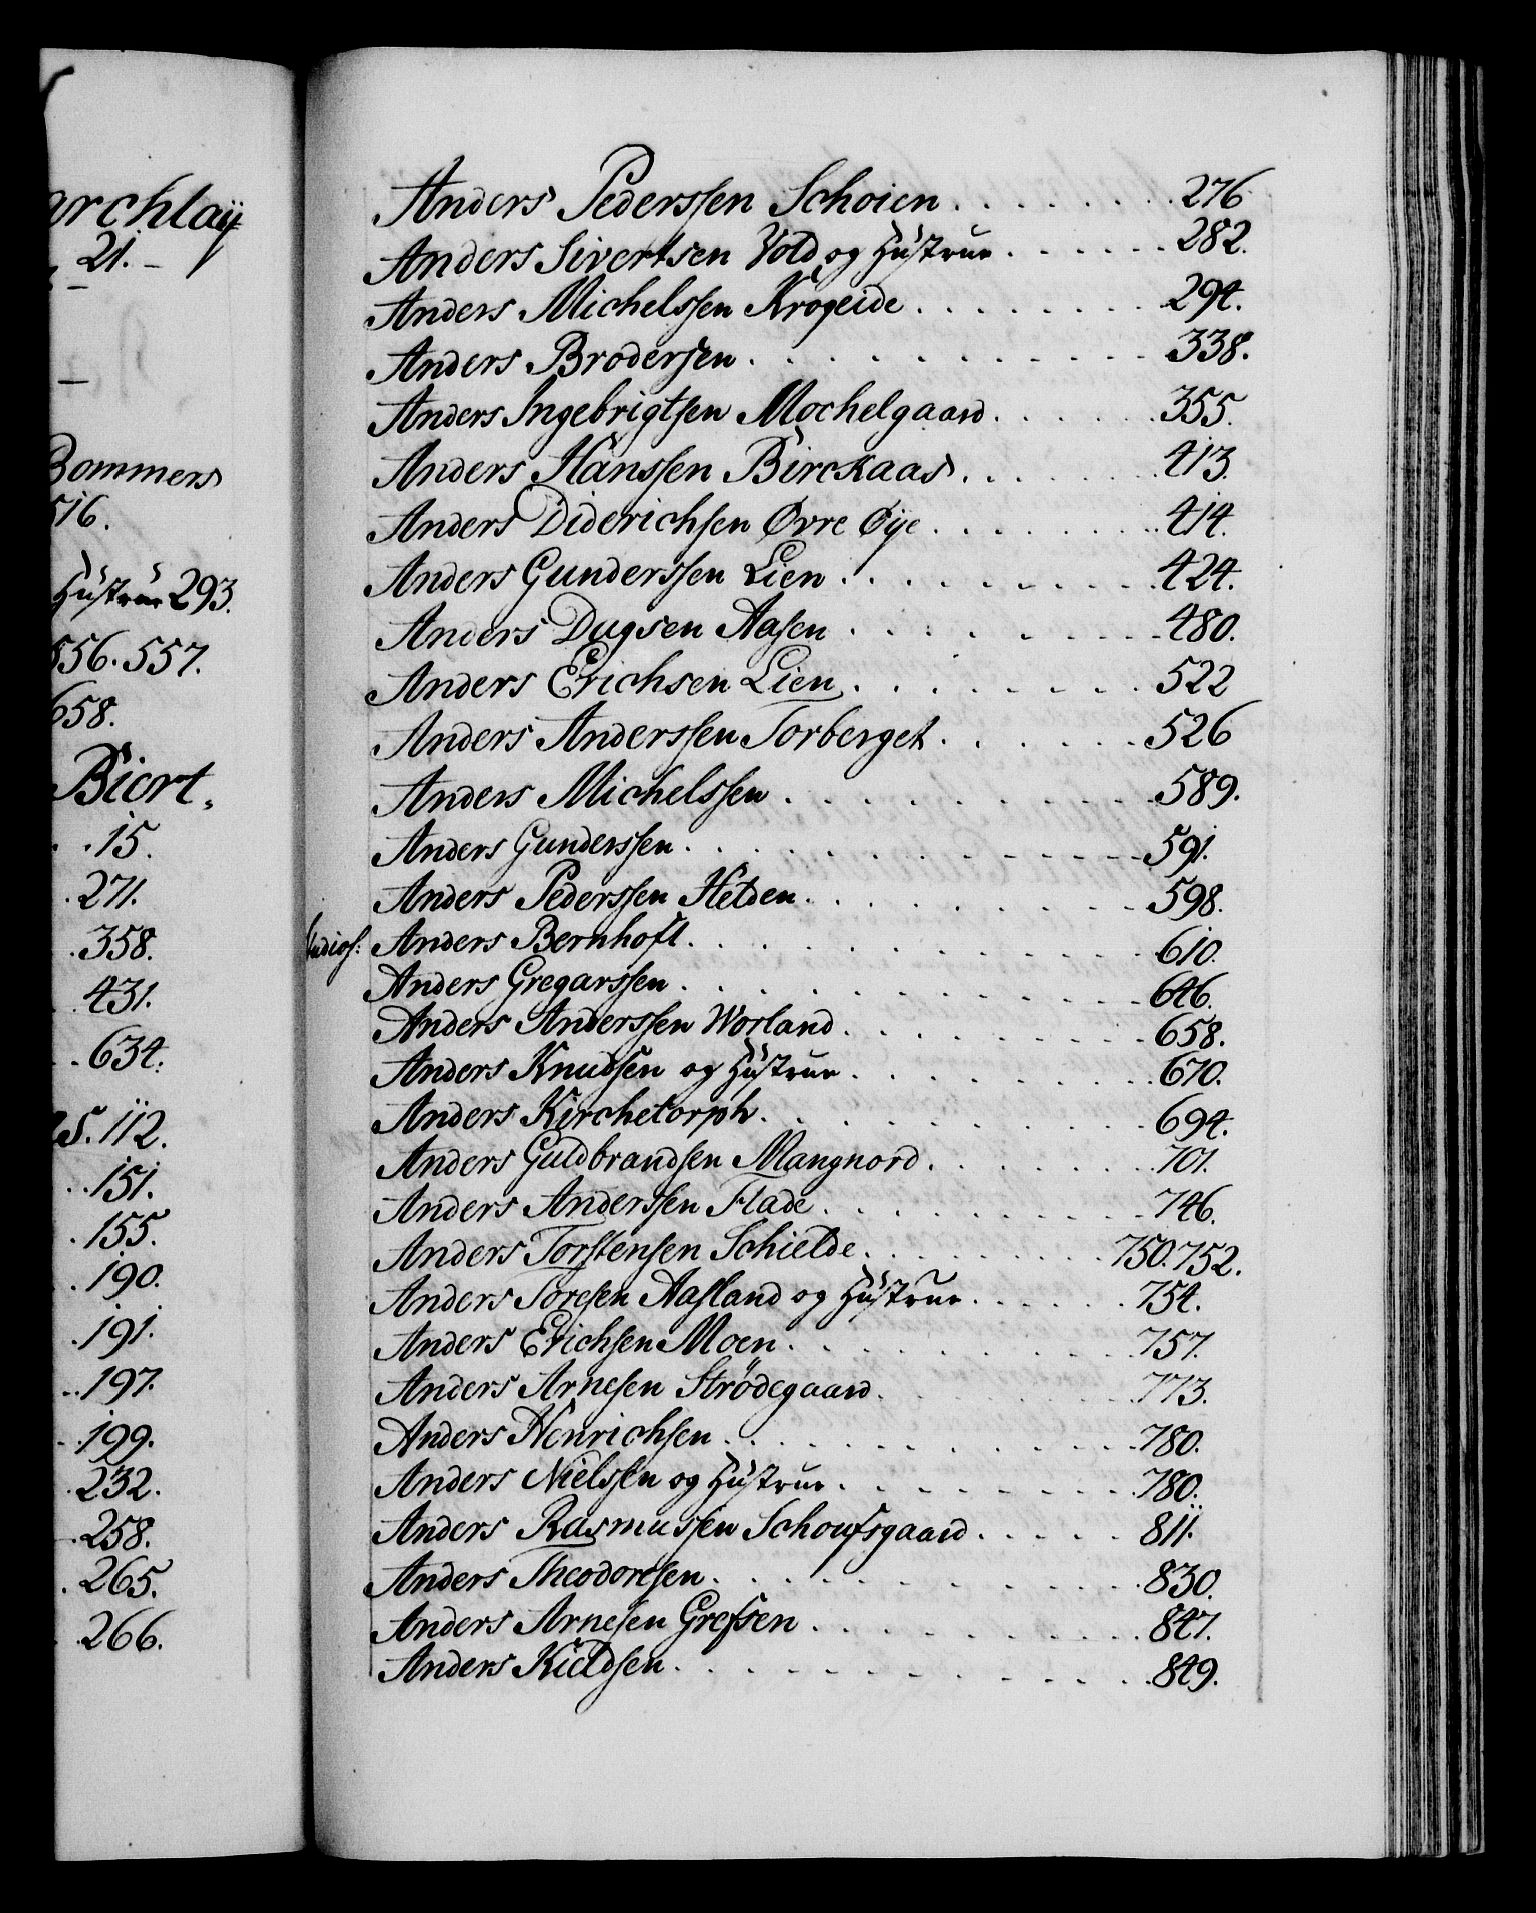 archlaÿ
21. -
Bommers
516.
Hüstrue 293.
556. 557.
658.
Biort.
. . 15.
. 271.
. 358.
. 431.
. . 634.
as. 112.
. . 151.
. 155.
. 190.
. 191.
. . 197.
. . 199.
. 232.
258.
. 265.
. 266.
Anders Pederssen Schoien . . . . . . . . 276
Anders Sivertsen Vold og Hüstrue . . . . . . 282.
Anders Michelssen Krogeide . . . . . . . . 294.
Anders Brodersen . . . . . . . . . . 338.
Anders Ingebrigtsen Mochelgaard . . . . . . 355.
Anders Hanssen Birckaas . . . . . . 413.
Anders Diderichsen Øvre Øye . . . . . . . 414.
Anders Gunderssen Lien . . . . . . . . 424.
Anders Dugsen Aasen . . . . . . . . 480.
Anders Erichsen Lien . . . . . . . . 522
Anders Anderssen Torberget . . . . . . 526
Anders Michelssen . . . . . . . . . . 589.
Anders Gunderssen . . . . . . . . . . 591.
Anders Pederssen Helden . . . . . . . . 598.
Studios: Anders Bernhoft . . . . . . . . . . 610.
Anders Gregarssen . . . . . . . . . . 646.
Anders Anderssen Worland . . . . . . . . 658.
Anders Knudsen og Hüstrue . . . . . . . . 670.
Anders Kirchetorph . . . . . . . . . . 694.
Anders Guldbrandsen Mangnord . . . . . . . 701.
Anders Anderssen Flade . . . . . . . . 746.
Anders Torstensen Schielde . . . . . . . 750. 752.
Anders Toresen Aasland og Hüstrue . . . . . . 754.
Anders Erichsen Moen . . . . . . . . 757.
Anders Arnesen Strødegaard . . . . . . . 773.
Anders Henrichsen . . . . . . . . . . 780.
Anders Nielssen og Hüstrue . . . . . . . . 780.
Anders Rasmussen Schoufsgaard . . . . . 811.
Anders Theodoresen . . . . . . . . . . 830.
Anders Arnesen Grefsen . . . . . . . . 847.
Anders Kieldsen . . . . . . . . . . 849.